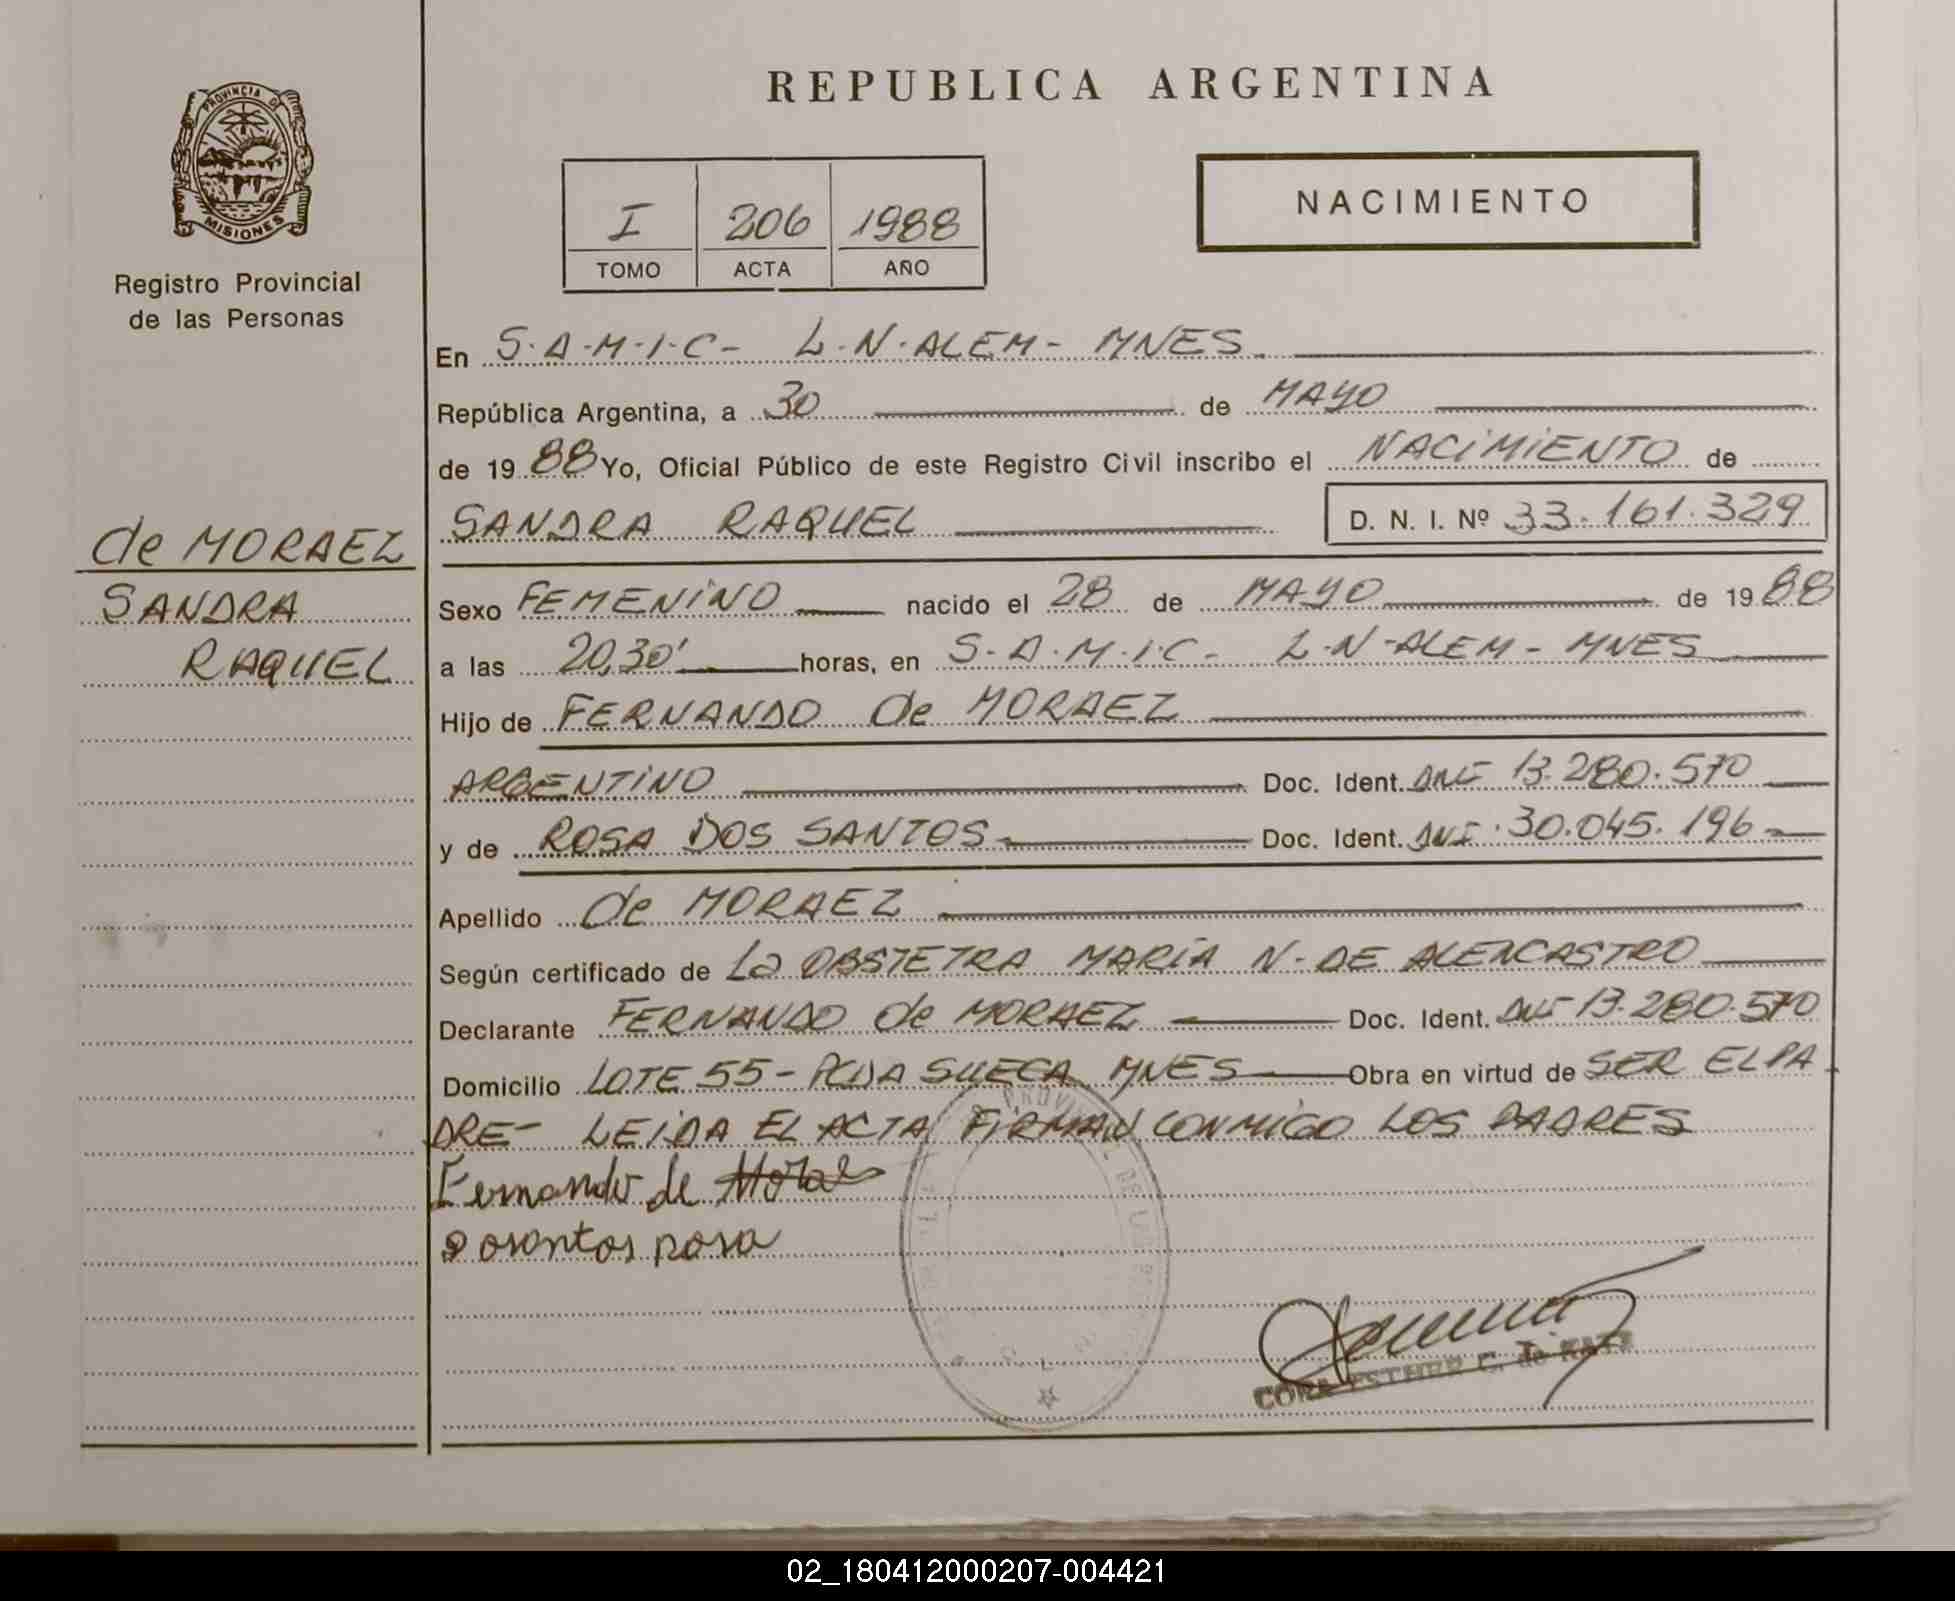 PROVINCIA DE
MISIONES
Registro Provincial
de las Personas
de MORAEZ
SANDRA
RAQUEL
REPUBLICA ARGENTINA
I 206 1988
TOMO ACTA AÑO
NACIMIENTO
En S.A.M.I.C- L.N.ALEM- MNES.
República Argentina, a 30 de MAYO
de 1988 Yo, Oficial Público de este Registro Civil inscribo el NACIMIENTO de
SANDRA RAQUEL D. N. I. Nº 33.161.329
Sexo FEMENINO nacido el 28 de MAYO de 1988
a las 20,30' horas, en S.A.M.I.C- L.N-ALEM- MNES
Hijo de FERNANDO de MORAEZ
ARGENTINO Doc. Ident. DNI 13.280.570
y de ROSA DOS SANTOS Doc. Ident. DNI 30.045.196
Apellido de MORAEZ
Según certificado de La OBSTETRA MARÍA N. DE ALENCASTRO
Declarante FERNANDO de MORAEZ Doc. Ident. DNI 13.280.570
Domicilio LOTE 55- PCDA SUECA MNES Obra en virtud de SER EL PA
DRE- LEIDA EL ACTA FIRMAN CONMIGO LOS PADRES
Fernando de Morae
Dosantos rosa
CORA ESTHER C. de KATZ
02_180412000207-004421